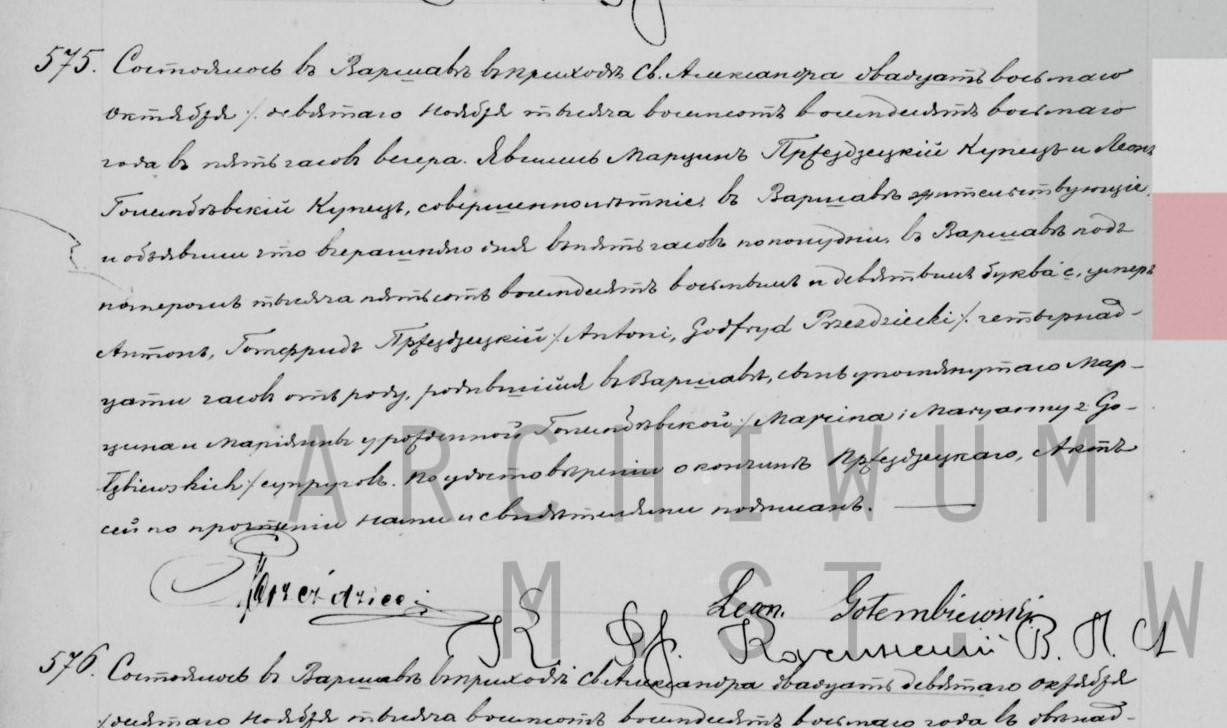 575. Состоялось въ Варшавѣ въ приходѣ Св. Александра двадцать восьмаго
Октября /: девятаго Ноября тысяча восемьсотъ восемьдесятъ восьмаго
года въ пять часовъ вечера. Явились Марцинъ Пржездзецкій Купецъ и Леонъ
Голембѣвскій Купецъ, совершеннолѣтніе, въ Варшавѣ жительствующіе,
и объявили что вчерашняго дня въ пять часовъ пополудни, въ Варшавѣ подъ
номеромъ тысяча пятьсотъ восемьдесятъ восьмымъ и девятымъ буква с, умеръ
Антонъ, Готфридъ Пржездзецкій /: Antoni, Godfryd Przezdziecki /: четырнад-
цати часовъ отъ роду, родившійся въ Варшавѣ, сынъ упомянутаго Мар-
цина и Маріянны урожденной Голембѣвской /: Marcina i Maryanny z Go-
łębiewskich /: супруговъ. По удостовѣреніи о кончинѣ Пржездзецкаго, Актъ
сей по прочтеніи Нами и свидѣтелями подписанъ.
Leon. Gołembiewski
К.
В. П. А
576. Состоялось въ Варшавѣ въ приходѣ Св Александра двадцать девятаго Октября
/: десятаго Ноября тысяча восемьсотъ восемьдесятъ восьмаго года въ
ARCHIWUM
M. ST. W